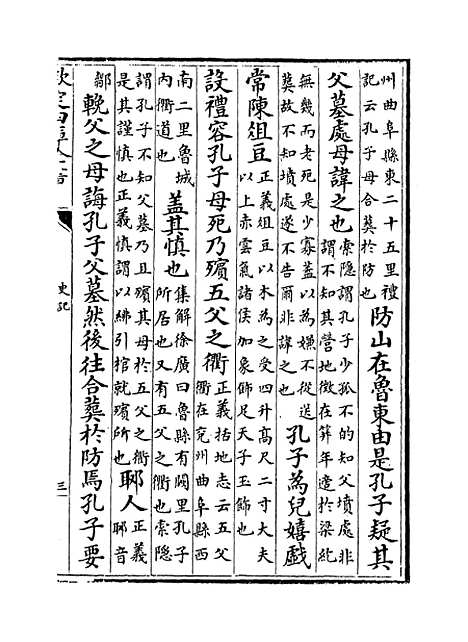 州曲阜縣東二十五里禮
記云孔子母合葬於防也
防山在魯東由是孔子疑其
父墓處母諱之也
索隱謂孔子少孤不的知父墳處非
謂不知其塋地徴在筓年適於梁紇
無幾而老死是少寡蓋以為嫌不從送
葬故不知墳處遂不告爾非諱之也
孔子為兒嬉戲
常陳俎豆
正義俎豆以木為之受四升髙尺二寸大夫
以上赤雲氣諸侯加象飾足天子玉飾也
設禮容孔子母死乃殯五父之衢
正義括地志云五父
衢在兖州曲阜縣西
南二里魯城
内衢道也
蓋其慎也
集解徐廣曰魯縣有闕里孔子
所居也又有五父之衢也索隱
謂孔子不知父墓乃且殯其母於五父之衢
是其謹慎也正義慎謂以紼引棺就殯所也
郰人
正義
郰音
鄹
輓父之母誨孔子父墓然後往合葬於防焉孔子要
欽定四庫全書
史記